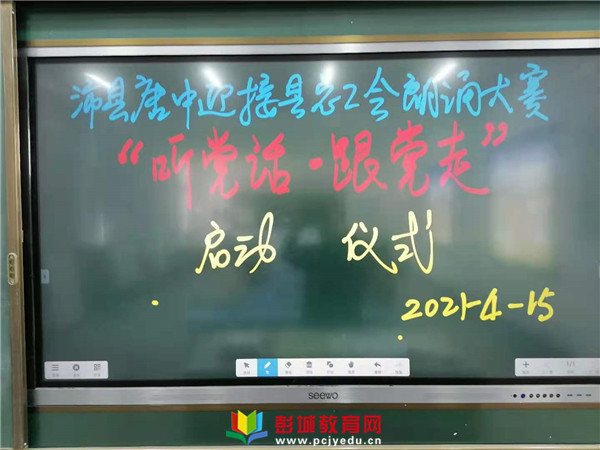 沛县唐中迎接县总工会朗诵大赛
“听党话·跟党走”
启动 仪式
2021-4-15
seewo
彭城教育网
www.pcjyedu.cn